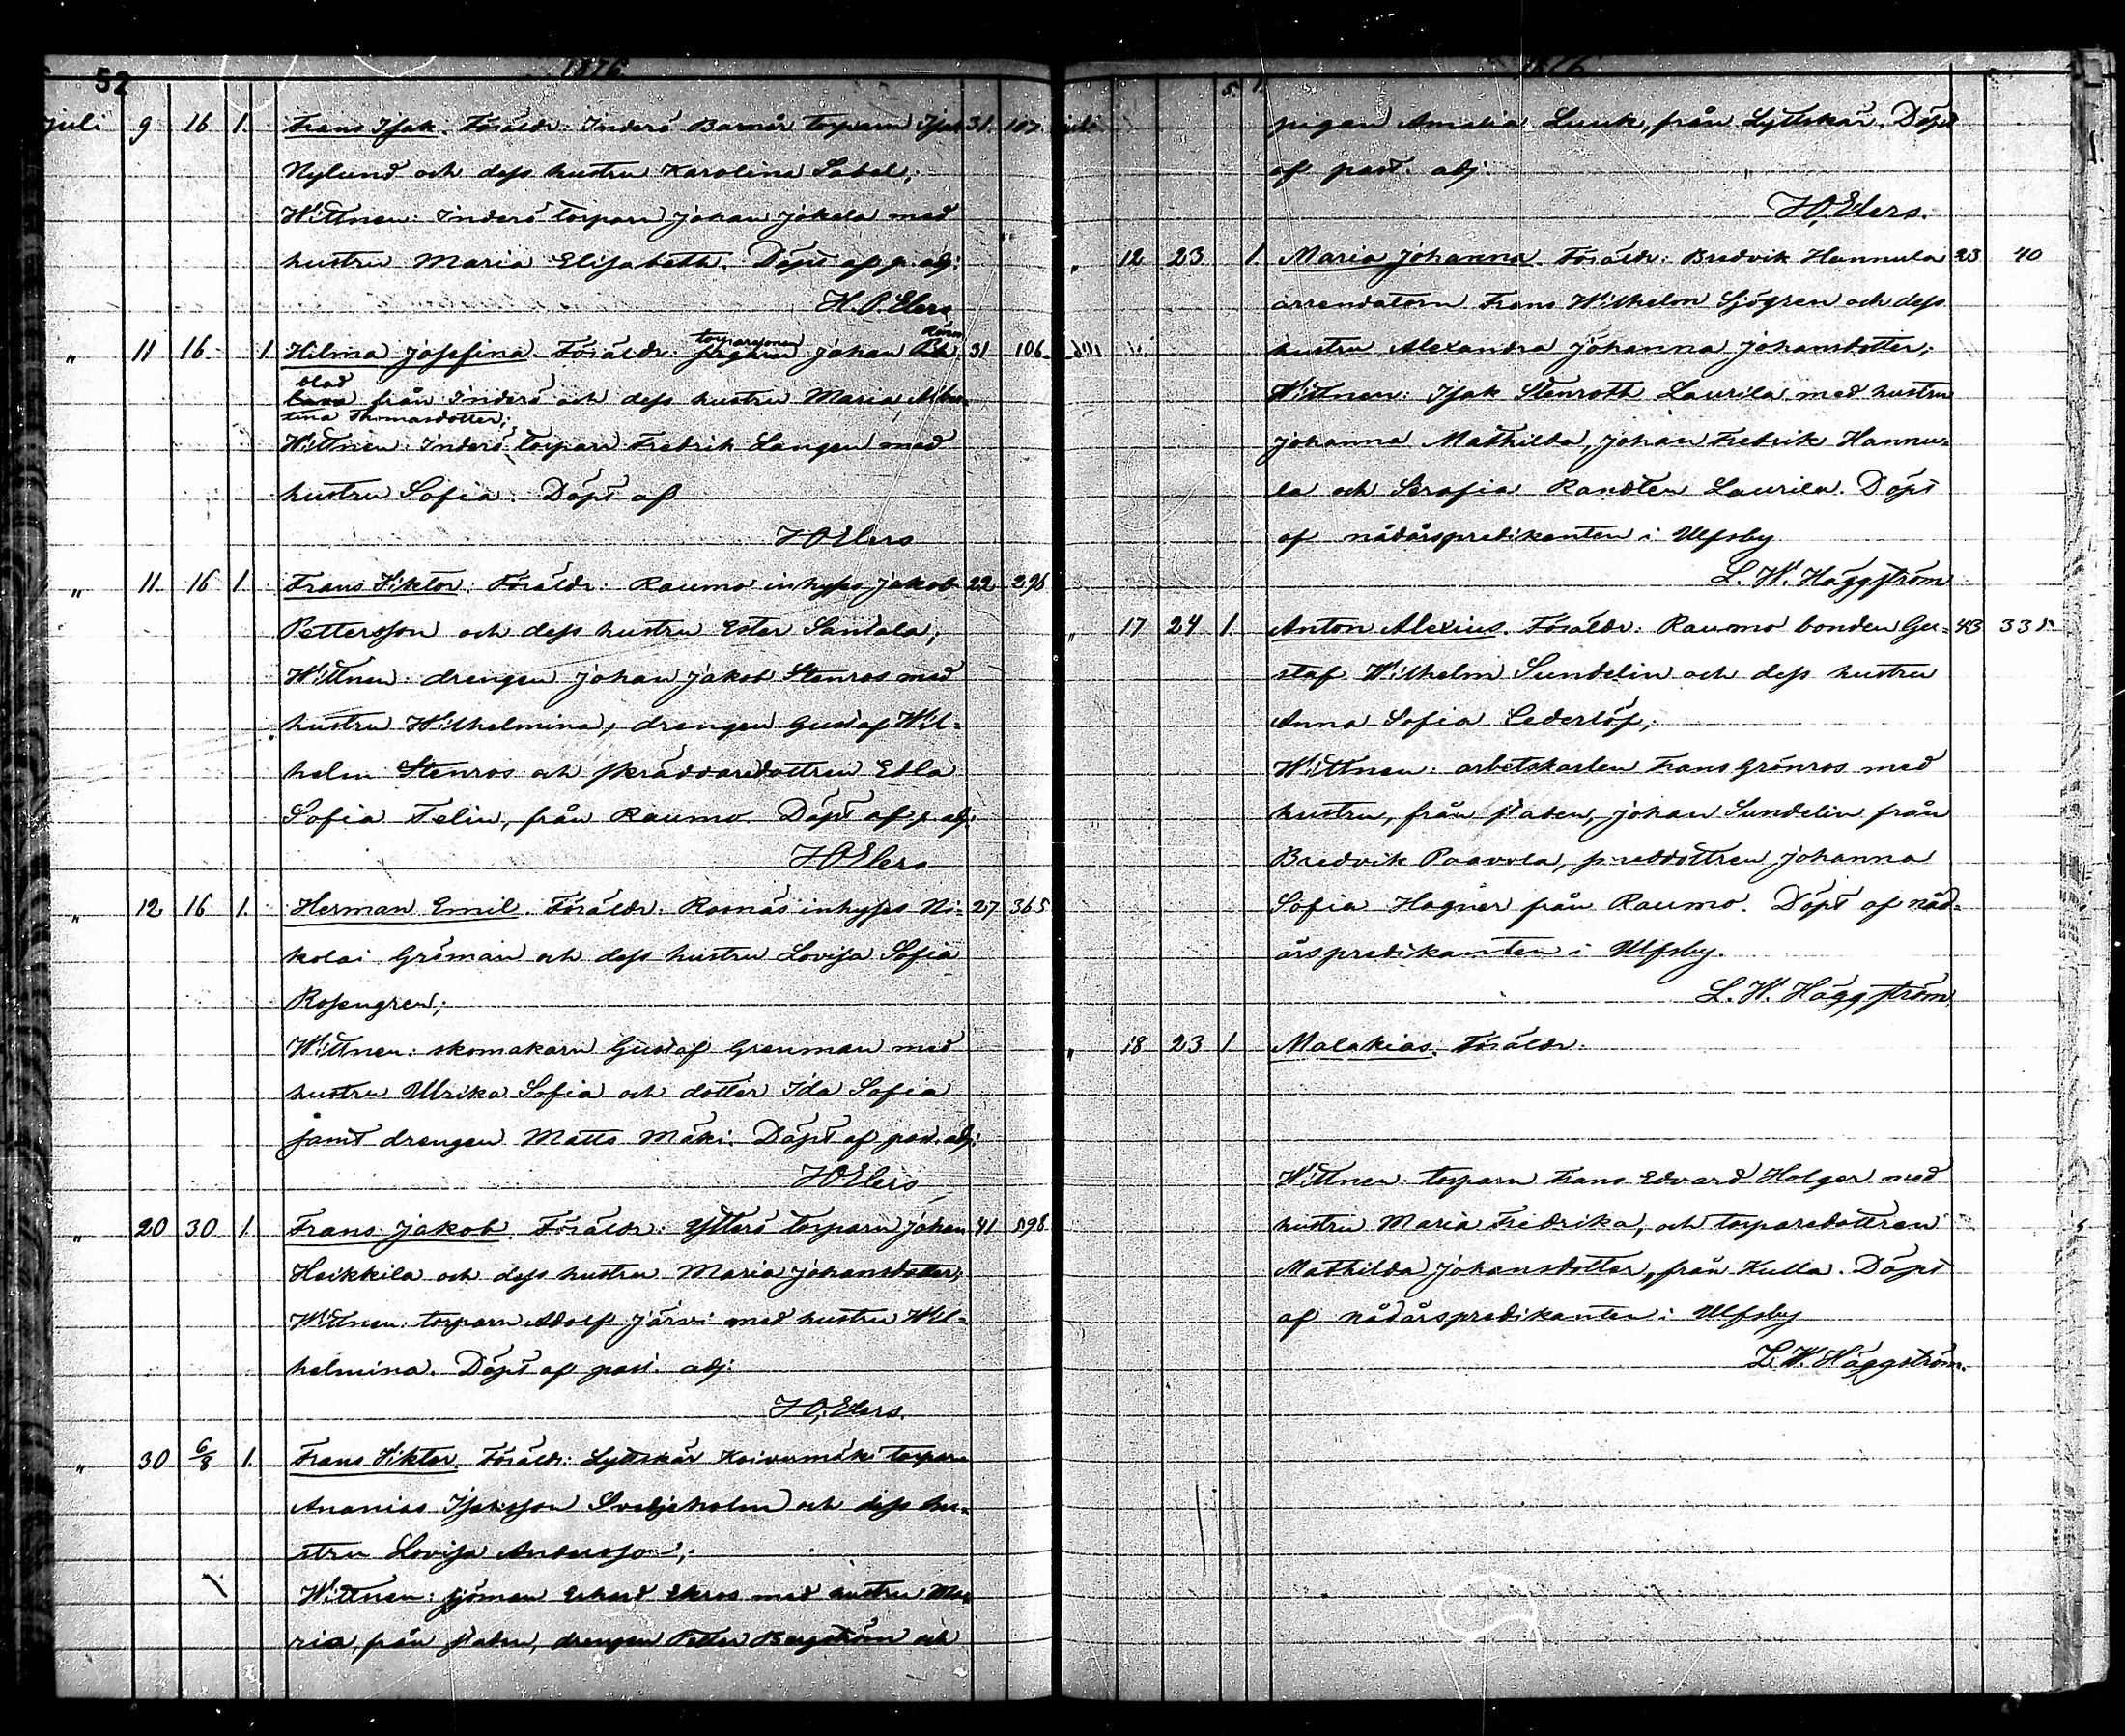 52
1876
juli 9 16 1. Frans Isak. Föräldr: Inderö Barnär torparn Isak 31. 107.
Nylund och dess hustru Karolina Sabel;
Wittnen: Inderö torparn Johan Jokela med
hustru Maria Elisabeth. Döpt af p. adj:
H. O. Elers
" 11 16 1 Hilma Josefina. Föräldr: torparsonen Johan Rönn 31 106.
blad från Inderö och dess hustru Maria Alber-
tina Thomasdotter;
Wittnen: Inderö torparn Fredrik Langen med
hustru Sofia. Döpt af
H O Elers
" 11. 16 1. Frans Viktor. Föräldr: Raumo inhyses Jakob 22 296
Pettersson och dess hustru Ester Santala;
Wittnen: drengen Johan Jakob Stenros med
hustru Wilhelmina, drengen Gustaf Wil-
helm Stenros och skräddaredottren Edla
Sofia Felin, från Raumo. Döpt af p. adj:
H O Elers
" 12 16 1. Herman Emil. Föräldr: Rosnäs inhyses Ni- 27 365
kolai Gröman och dess hustru Lovisa Sofia
Rosengren;
Wittnen: skomakarn Gustaf Grenman med
hustru Ulrika Sofia och dotter Ida Sofia
samt drengen Matts Mäki. Döpt af past. adj:
H O Elers
" 20 30 1. Frans Jakob. Föräldr: Ytterö torparn Johan 41 598
Heikkilä och dess hustru Maria Johansdotter;
Wittnen: torparn Adolf Järvi med hustru Wil-
helmina. Döpt af past. adj:
H O. Elers.
" 30 6/8 1. Frans Viktor. Föräldr: Lyttskär Koivumäki torparn
Ananias Isaksson Sveljeholm och dess hu-
stru Lovisa Andersson;
Wittnen: sjöman Erhard Ekros med hustru Ma-
ria, från staden, drengen Petter Bergström och
1876
s. 1.
juli pigan Amalia Luuk, från Lyttskär. Döpt
af past. adj:
H O. Elers.
" 12 23 1. Maria Johanna. Föräldr: Bredvik Hannula 23 40
arrendatorn Frans Wilhelm Sjögren och dess
hustru Alexandra Johanna Johansdotter;
Wittnen: Isak Stenroth Laurila med hustru
Johanna Mathilda, Johan Fredrik Hannu-
la och Serafia Randten Laurila. Döpt
af nådårspredikanten i Ulfsby
L. W. Häggström
" 17 24 1. Anton Alexius. Föräldr: Raumo bonden Gu- 43 335
staf Wilhelm Sundelin och dess hustru
Anna Sofia Cederlöf;
Wittnen: arbetskarlen Frans Grönros med
hustru, från staden, Johan Sundelin från
Bredvik Paavola, smeddottren Johanna
Sofia Hagner från Raumo. Döpt af nåd-
årspredikanten i Ulfsby.
L. W. Häggström.
" 18 23 1 Malakias. Föräldr:
Wittnen: torparn Frans Edvard Holger med
hustru Maria Fredrika, och torparedottren
Mathilda Johansdotter, från Kulla. Döpt
af nådårspredikanten i Ulfsby
L. W. Häggström.